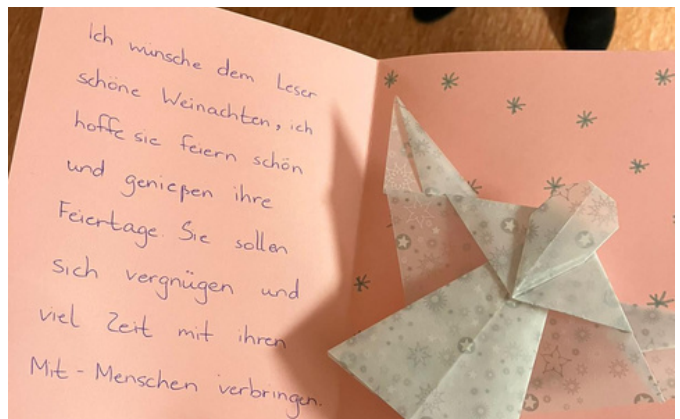 Ich wünsche dem Leser
schöne Weinachten, ich
hoffe sie feiern schön
und genießen ihre
Feiertage. Sie sollen
sich vergnügen und
viel Zeit mit ihren
Mit-Menschen verbringen.